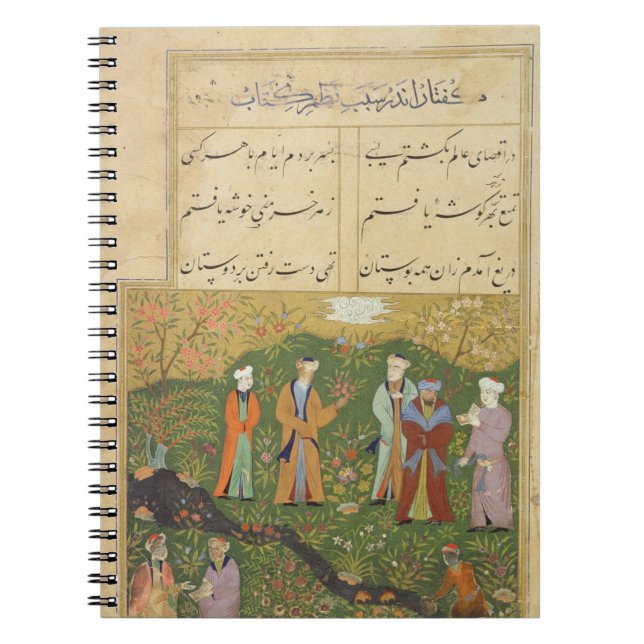 گفتار اندر سبب نظم کتاب
در اقصای عالم بگشتم بسی بسر بردم ایام با هر کسی
تمتع بهر گوشهٔ یافتم زهر خرمنی خوشهٔ یافتم
دریغ آمدم زان همه بوستان تهی دست رفتن بر دوستان